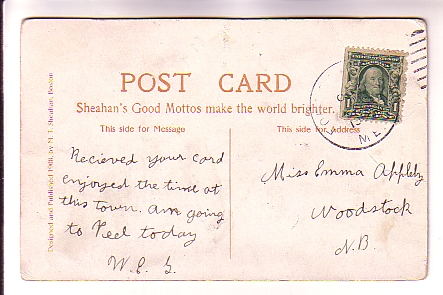 POST CARD
Sheahan's Good Mottos make the world brighter.
This side for Message
This side for Address
Designed and Published 1908, by M. T. Sheahan, Boston
Recieved your card
enjoyed the time at
this town. am going
to Peel today
W. E. G.
Miss Emma Appleby
Woodstock
N.B.
ME.